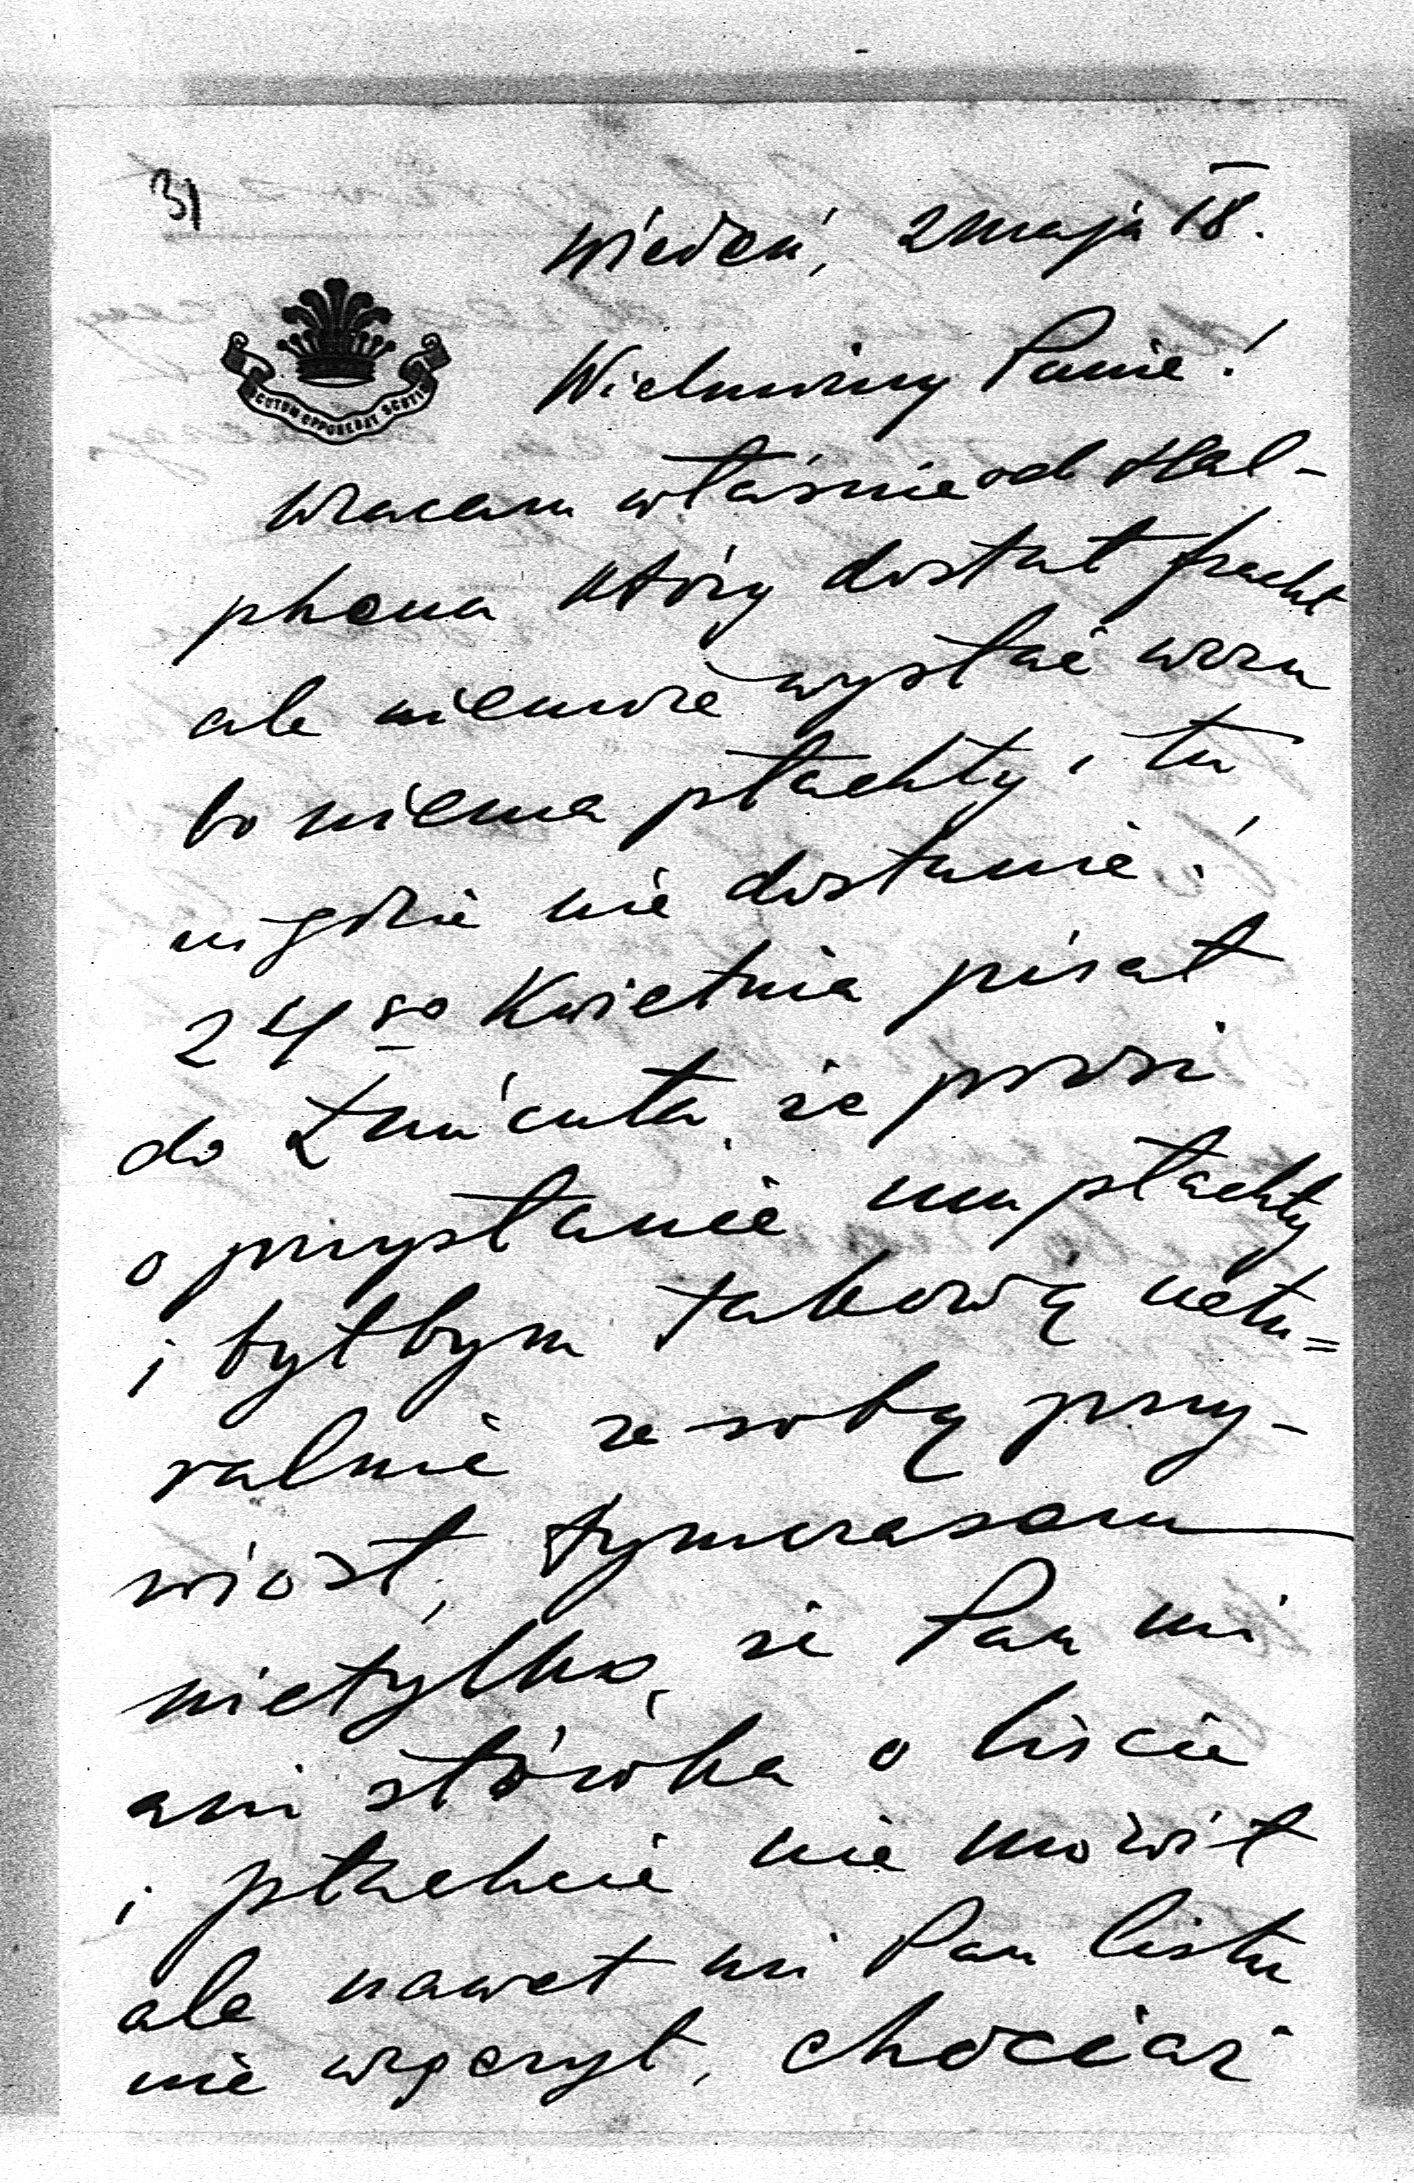 31
Wiedeń, 2 maja 18.
SCUTUM OPPONEBAT SCUTIS
Wielmożny Panie!
Wracam właśnie od Hal-
phena który dostał fracht
ale niemoże wysłać wozu
bo niema płachty i tu
nigdzie nie dostanie.
24go Kwietnia pisał
do Łańcuta, że prosi
o przysłanie mu płachty
i byłbym takową natu=
ralnie ze sobą przy-
wiózł, tymczasem
nietylko, że Pan mi
ani słówka o liście
i płachcie nie mówił
ale nawet mi Pan listu
nie wręczył, chociaż